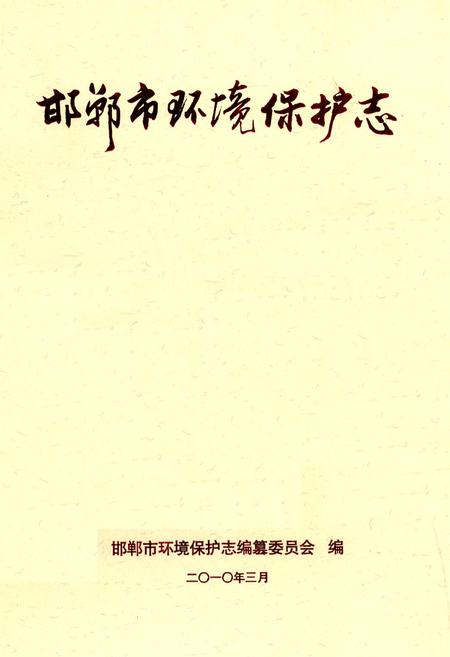 邯郸市环境保护志
邯郸市环境保护志编纂委员会 编
二〇一〇年三月